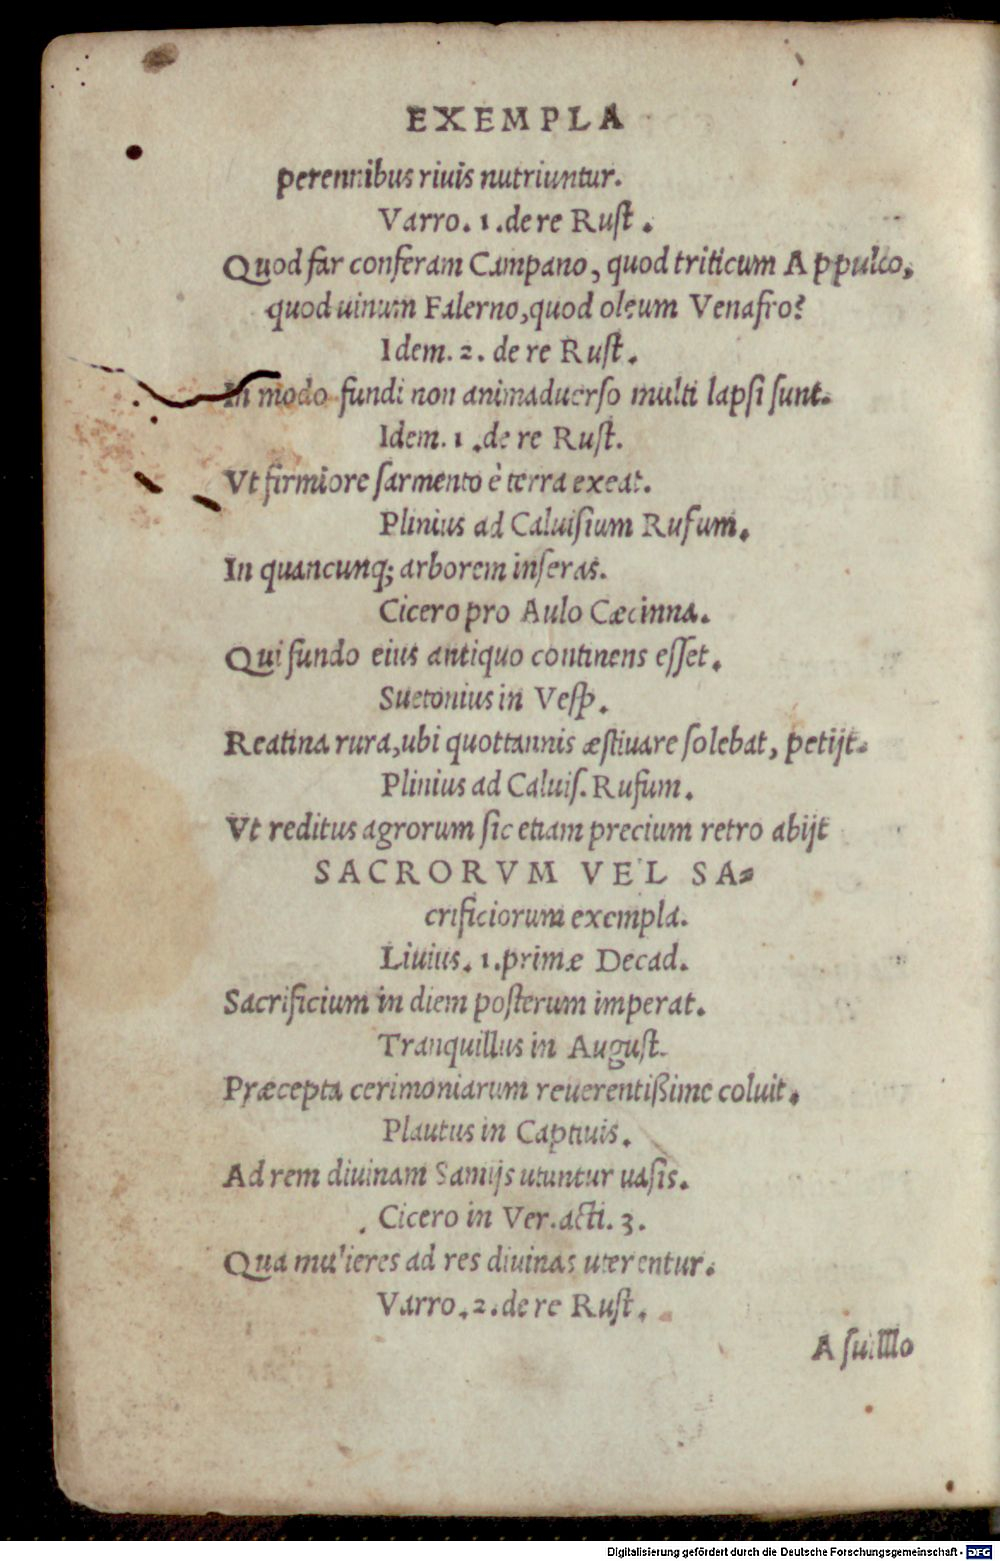 EXEMPLA
perennibus riuis nutriuntur.
Varro. 1. de re Rust.
Quod far conferam Campano, quod triticum Appulco,
quod uinum Falerno, quod oleum Venafro?
Idem. 2. de re Rust.
In modo fundi non animaduerso multi lapsi sunt.
Idem. 1. de re Rust.
Vt firmiore sarmento è terra exeat.
Plinius ad Caluisium Rufum.
In quancunq; arborem inseras.
Cicero pro Aulo Cæcinna.
Qui fundo eius antiquo continens esset.
Suetonius in Vesp.
Reatina rura, ubi quottannis æstiuare solebat, petijt.
Plinius ad Caluis. Rufum.
Vt reditus agrorum sic etiam precium retro abijt
SACRORVM VEL SA=
crificiorum exempla.
Liuius. 1. primæ Decad.
Sacrificium in diem posterum imperat.
Tranquillus in August.
Præcepta cerimoniarum reuerentißime coluit.
Plautus in Captiuis.
Ad rem diuinam Samijs utuntur uasis.
Cicero in Ver. acti. 3.
Qua mulieres ad res diuinas uterentur.
Varro. 2. de re Rust.
A suillo
Digitalisierung gefördert durch die Deutsche Forschungsgemeinschaft - DFG